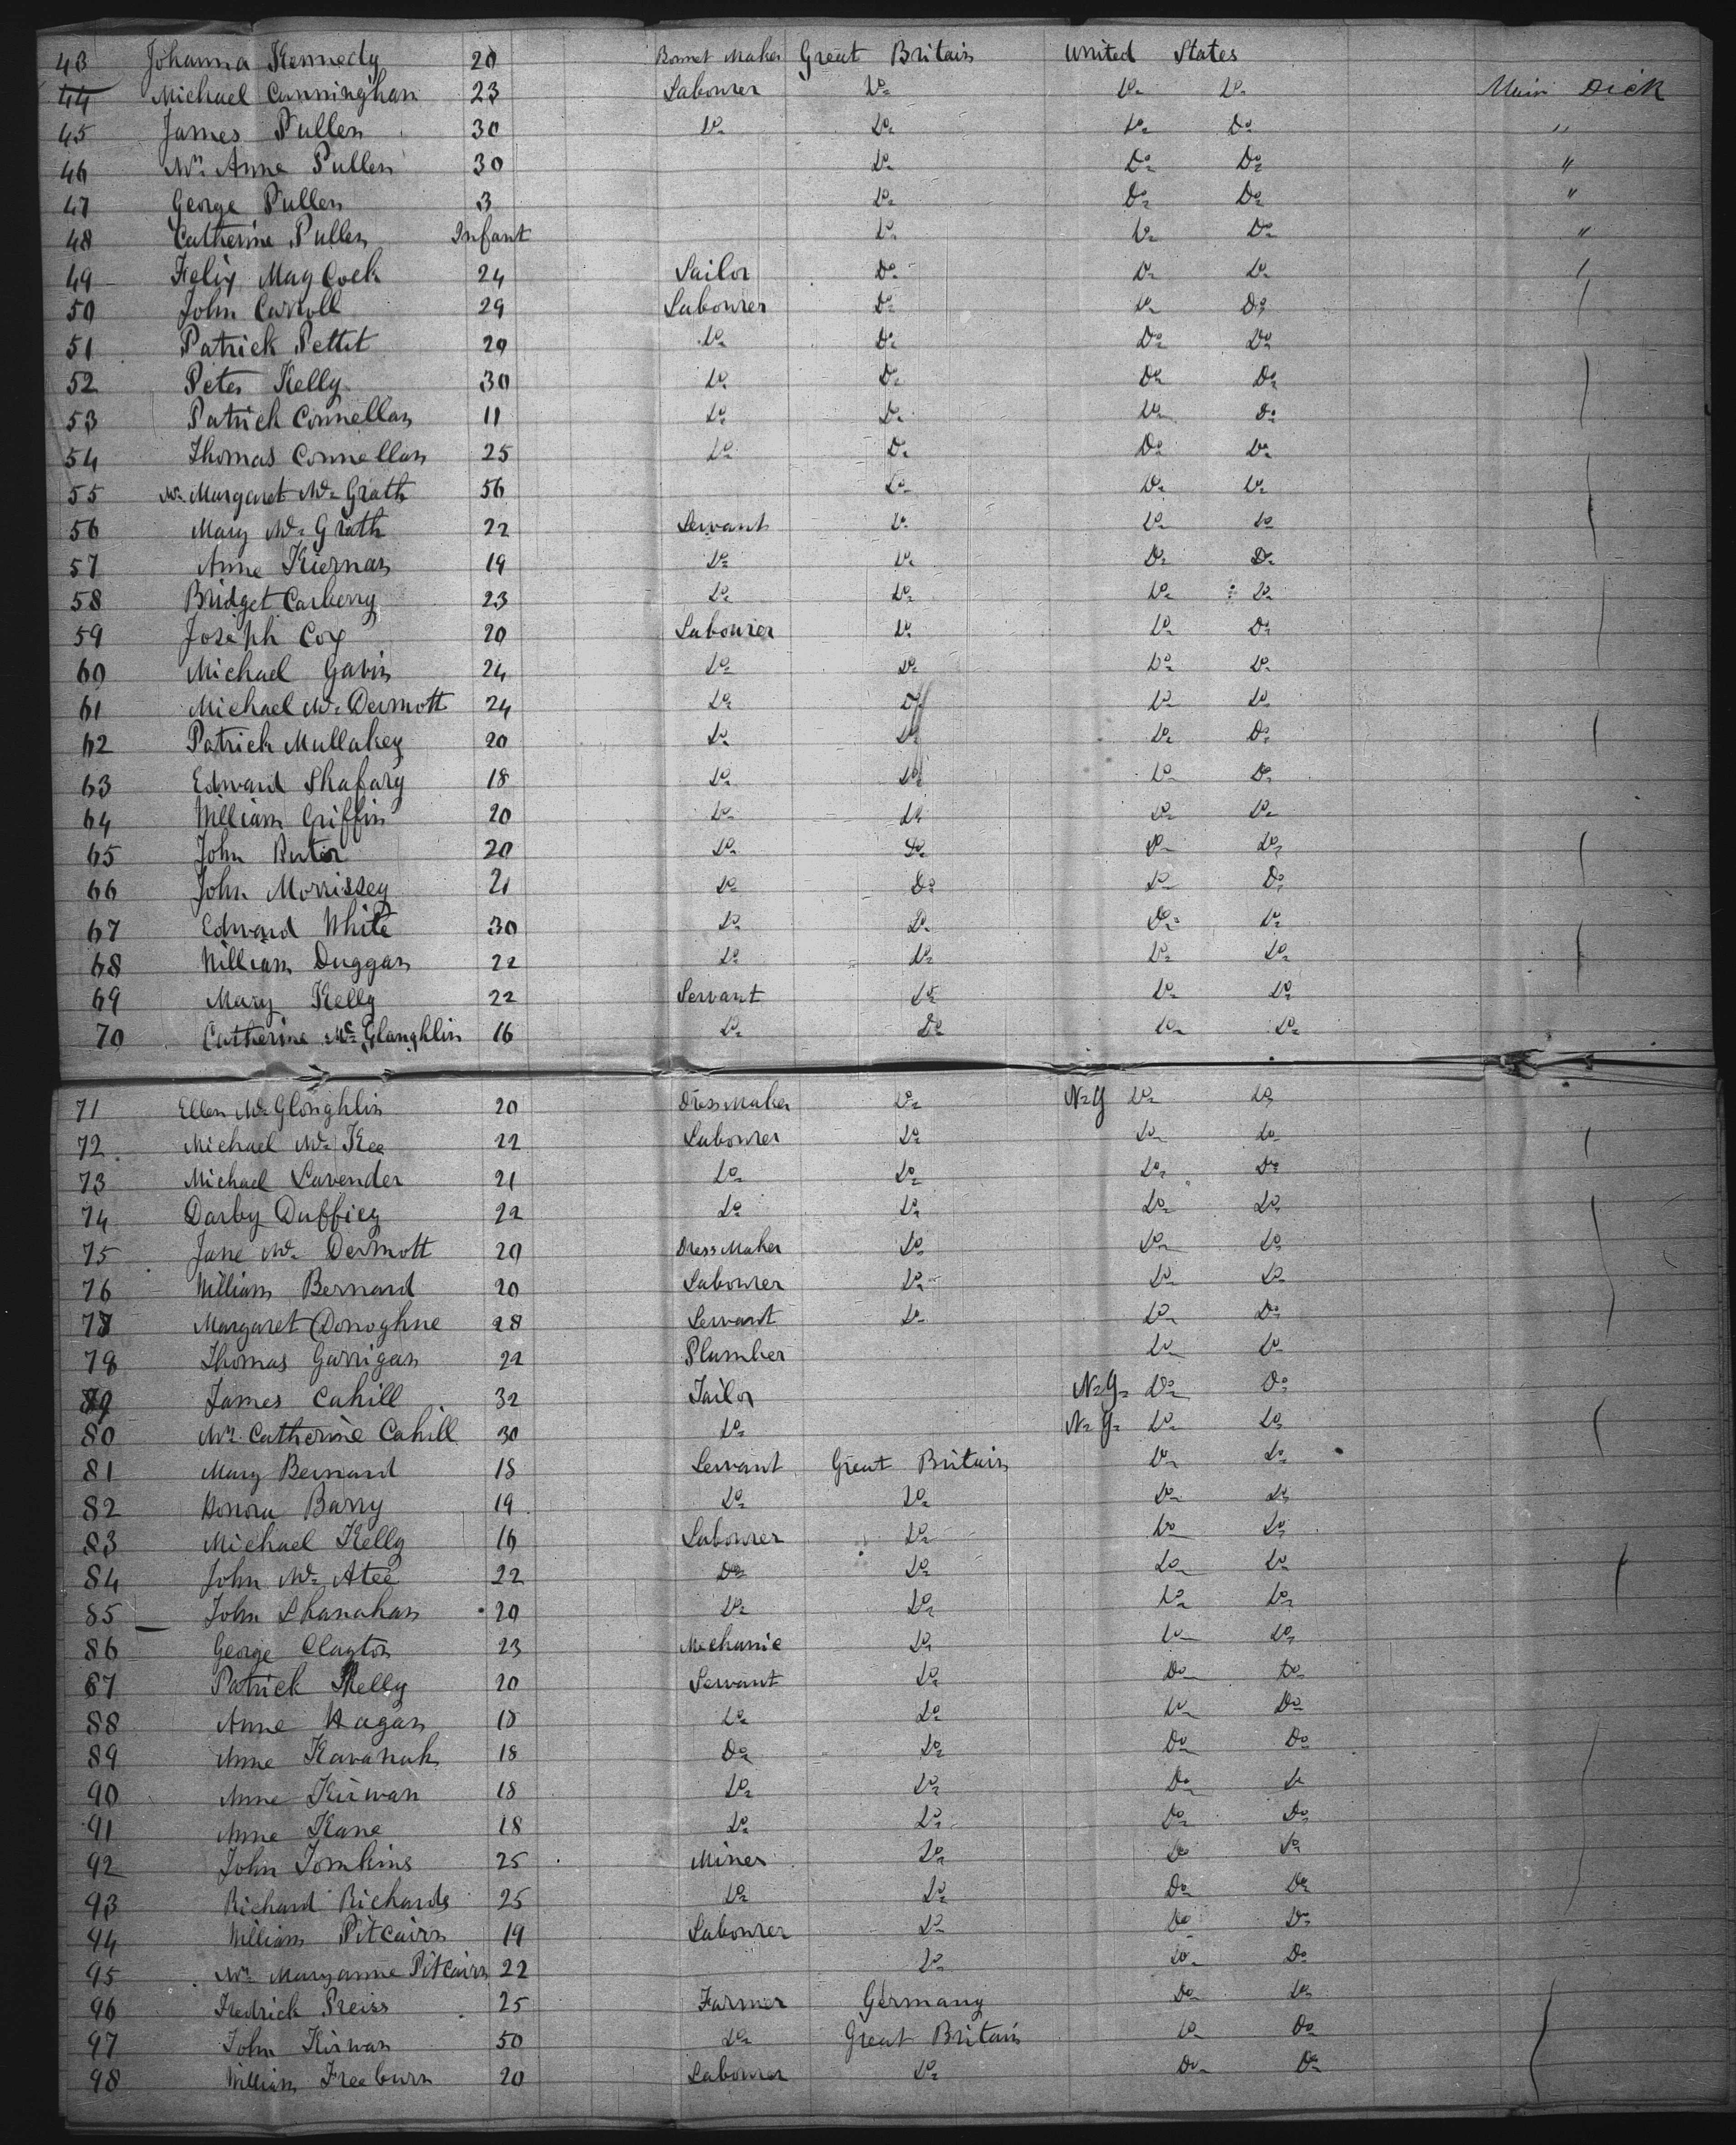 43 Johanna Kennedy 20 Bonnet Maker Great Britain United States
44 Michael Cunningham 23 Labourer Do Do Do Main Dick
45 James Pullen 30 Do Do Do Do "
46 Mrs Anne Pullen 30 Do Do Do "
47 George Pullen 3 Do Do Do "
48 Catherine Pullen Infant Do Do Do "
49 Felix Mag Cock 24 Sailor Do Do Do
50 John Carroll 29 Labourer Do Do Do
51 Patrick Pettit 29 Do Do Do Do
52 Peter Kelly 30 Do Do Do Do
53 Patrick Connellan 11 Do Do Do Do
54 Thomas Connellan 25 Do Do Do Do
55 Mrs Margaret Mc Grath 56 Do Do Do
56 Mary Mc Grath 22 Servant Do Do Do
57 Anne Kiernan 19 Do Do Do Do
58 Bridget Carberry 23 Do Do Do Do
59 Joseph Cox 20 Labourer Do Do Do
60 Michael Gavin 24 Do Do Do Do
61 Michael Mc Dermott 24 Do Do Do Do
62 Patrick Mullakey 20 Do Do Do Do
63 Edward Shafary 18 Do Do Do Do
64 William Griffin 20 Do Do Do Do
65 John 20 Do Do Do Do
66 John Morrissey 21 Do Do Do Do
67 Edward White 30 Do Do Do Do
68 William Duggan 22 Do Do Do Do
69 Mary Kelly 22 Servant Do Do Do
70 Catherine Mc Glaughlin 16 Do Do Do Do
71 Ellen Mc Gloughlin 20 Dress Maker Do N.Y Do Do
72 Michael Mc Kee 22 Labourer Do Do Do
73 Michael Lavender 21 Do Do Do Do
74 Darby Duffiey 22 Do Do Do Do
75 Jane Mc Dermott 20 Dress Maker Do Do Do
76 William Bernard 20 Labourer Do Do Do
77 Margaret Donoghue 28 Servant Do Do Do
78 Thomas Garrigan 22 Plumber Do Do
79 James Cahill 32 Tailor N.Y. Do Do
80 Mrs Catherine Cahill 30 Do N.Y. Do Do
81 Mary Bernard 18 Servant Great Britain Do Do
82 Honora Barry 19 Do Do Do Do
83 Michael Kelly 16 Labourer Do Do Do
84 John Mc Atee 22 Do Do Do Do
85 John Shanahan 20 Do Do Do Do
86 George Clayton 23 Mechanic Do Do Do
87 Patrick Kelly 20 Servant Do Do Do
88 Anne Hagan 18 Do Do Do Do
89 Anne Kavanah 18 Do Do Do Do
90 Anne Kirwan 18 Do Do Do Do
91 Anne Kane 18 Do Do Do Do
92 John Tomkins 25 Miner Do Do Do
93 Richard Richards 25 Do Do Do Do
94 William Pitcairn 19 Labourer Do Do Do
95 Mrs Maryanne Pitcairn 22 Do Do Do
96 Fredrick Preiss 25 Farmer Germany Do Do
97 John Kirwan 50 Do Great Britain Do Do
98 William Freeburn 20 Labourer Do Do Do